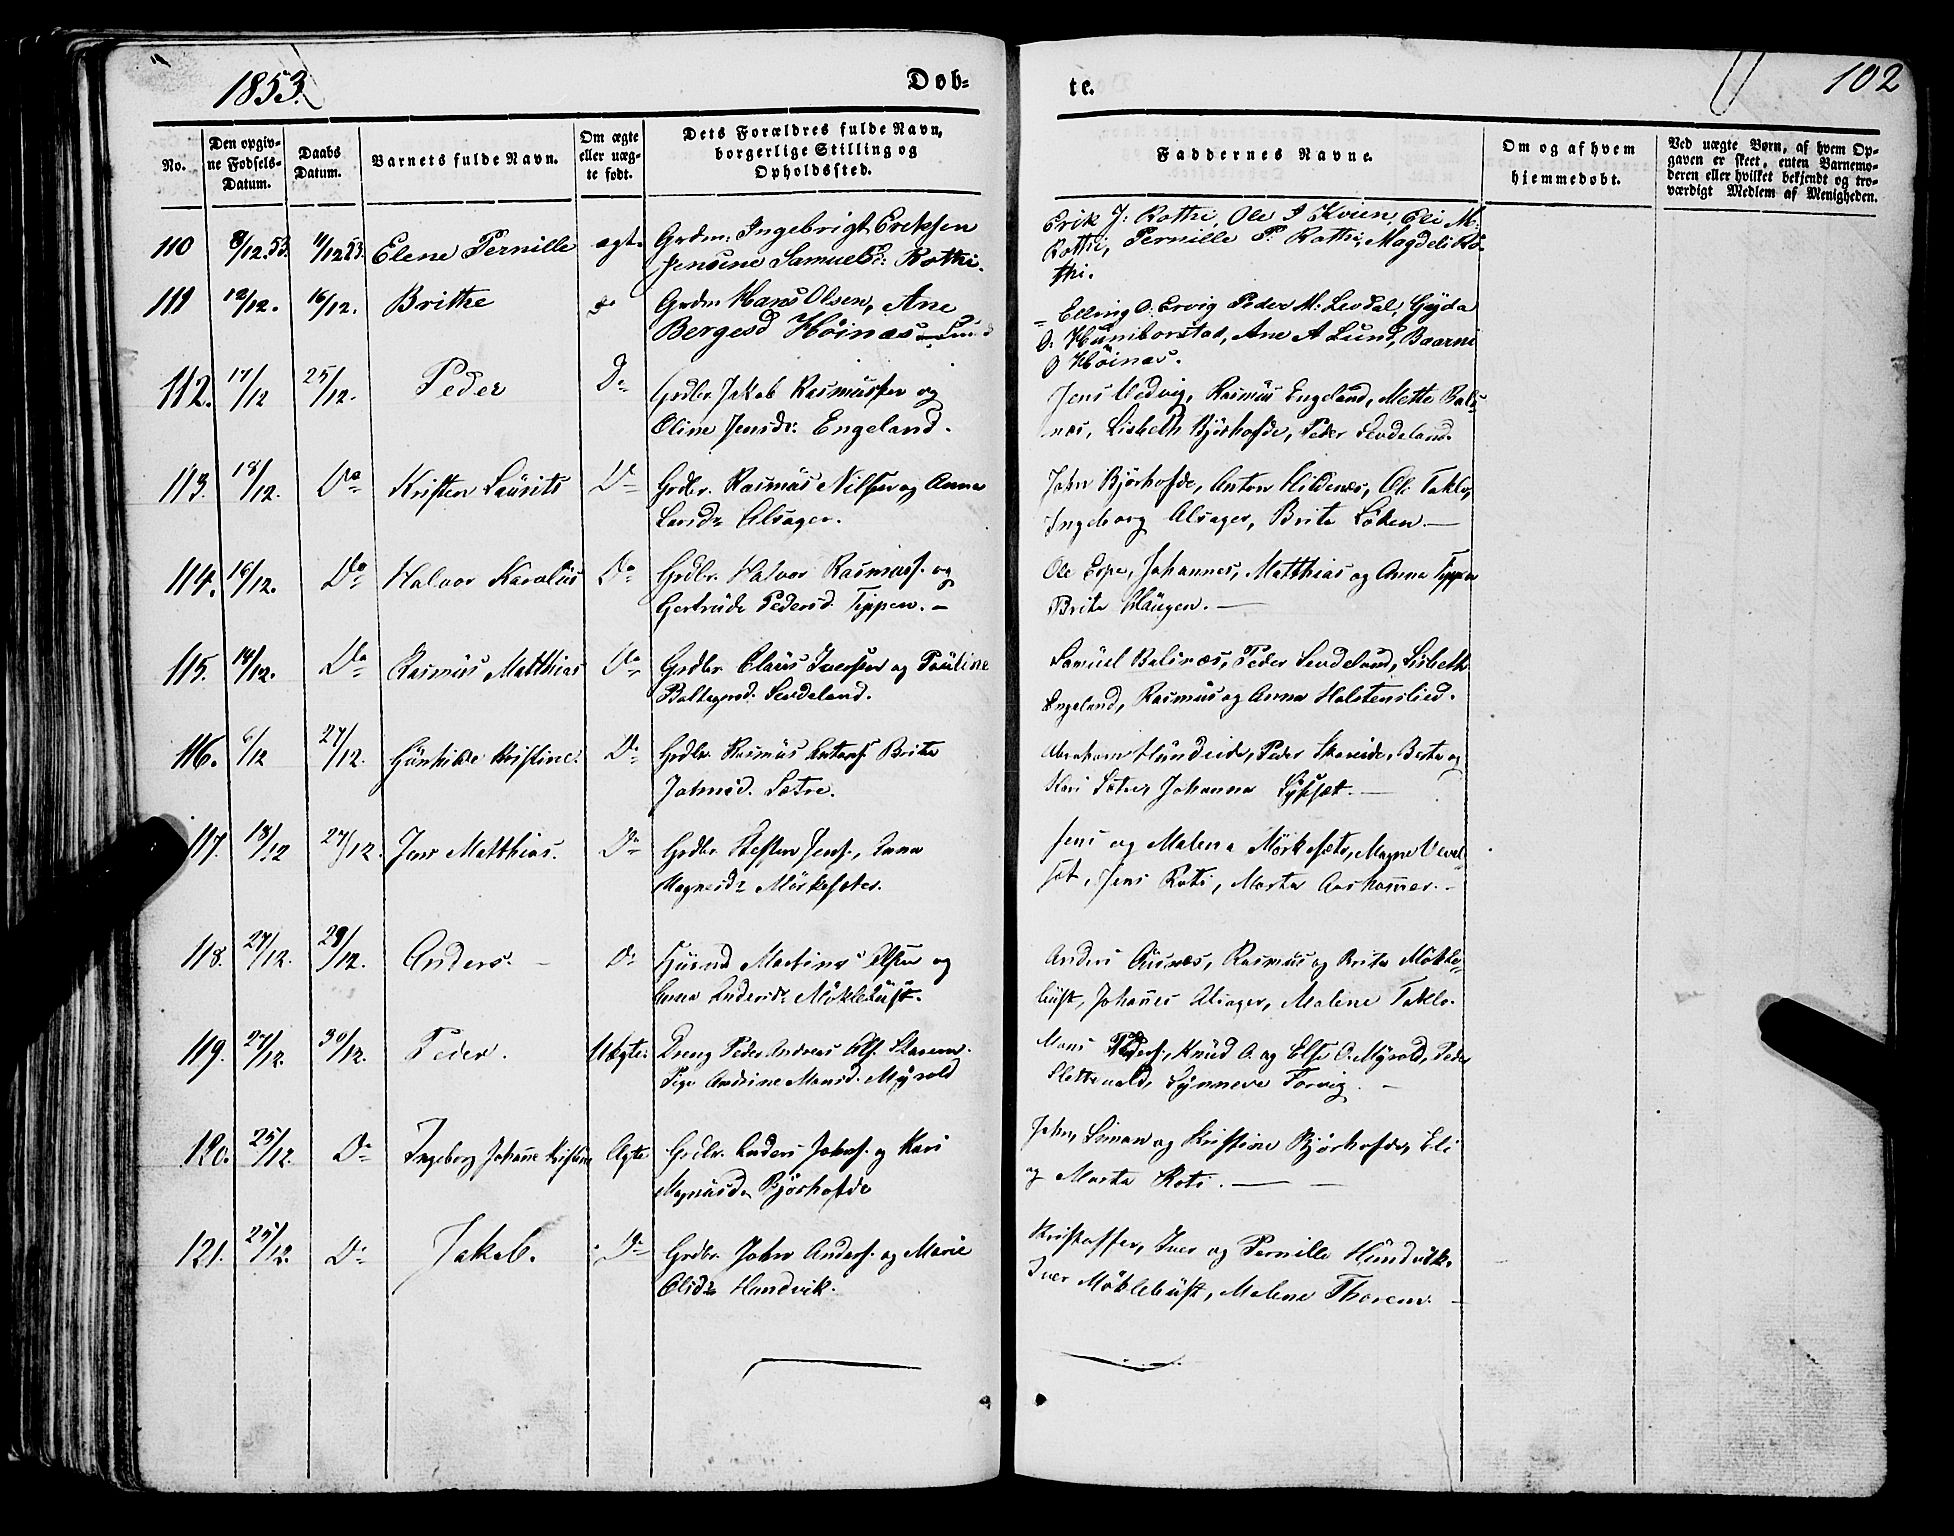 1853.
Døb-
te.
102
No.
Den opgiv-
ne Fødsels-
Datum.
Daabs
Datum.
Barnets fulde Navn.
Om ægte
eller uæg-
te født.
Dets Forældres fulde Navn,
borgerlige Stilling og
Opholdssted.
Faddernes Navne.
Om og af hvem
hjemmedøbt.
Ved uægte Børn, af hvem Op-
gaven er skeet, enten Barnemo-
deren eller hvilket bekjendt og tro-
værdigt Medlem af Menigheden.
110 8/12.53. 11/12 53. Elene Pernille ægt. Grdm: Ingebrigt Eriksen
Jensine Samuelsd: Rothi.
Erik J: Rothi, Ole I Kvien, Eli M:
Rothi, Pernille P: Rothi, Magdeli Ro-
thi.
111 12/12. 16/12. Brithe Grdm Hans Olsen, Ane
Bergesd Höinæs
Elling O: Ervig Peder M: Levdal, Gyda
O: Humborstad, Ane A Lund, Baarni
O Höinæs.
112. 17/12 25/12. Peder Do Grdbr. Jakob Rasmussen og
Oline Jensdr: Engeland.
Jens Vedvig, Rasmus Engeland, Mette Bals-
næs, Lisbeth Björhofde, Peder Levdeland.
113. 18/12. Do Kristen Laurits Do Grdbr. Rasmus Nilsen og Anna
Larsdr Alsager.
John Björhofde, Anton Hildenæs, Ole Taklo,
Ingeborg Alsager, Brite Löken.
114. 16/12. Do Halvor Karolus Do Grdbr. Halvor Rasmuss. og
Gertrude Pedersd. Tippen.
Ole Espe, Johannes, Matthias og Anna Tippen
Brite Haugen.
115. 14/12. Do Rasmus Matthias Do Grdbr. Claus Iversen og Pauline
Baltzersd. Levdeland.
Samuel Balsnæs, Peder Levdeland, Lisbeth
Engeland, Rasmus og Anna Holstenslied.
116. 6/12 27/12. Gunhilde Kristine. Do Grdbr. Rasmus Antons. Brite
Johnsd. Sætre.
Abraham Hundeide, Peder Skareide, Berte og
Kari Sætre, Johanna Sÿssæt.
117. 18/12 27/12. Jens Matthias. Do Grdbr. Resten Jens., Anna
Magnesdr Mörkesæter.
Jens og Malena Mörkesæte, Magne Vevel-
sæt, Jens Roti, Marta Aashamer.
118. 27/12. 29/12. Anders. Do Huusmd Martinus Olsen og
Anna Andersdr Möklebust.
Anders Ausnæs, Rasmus og Brite Mökle-
bust, Johannes Alsager, Malene Taklo.
119. 27/12. 30/12. Peder. Uægte. Dreng Peder Andreas Ols. Staven.
Pige Andrine Monsd. Myrold
Mons Peders., Knud O. og Else O. Myrold, Peder
Slettevold, Synneve Torvig.
120. 25/12. Do Ingeborg Johanne Kristine Ægte. Grdbr. Anders Johns. og Kari
Magnusdr Björhofde
John, Simon og Kristine Björhofde, Eli
og Marta Roti.
121. 25/12. Do Jakob. Do Grdbr. John Anders. og Marie
Elidr Hundvik.
Kristoffer, Iver og Pernille Hundvik.
Iver Möklebust, Malene Thorem.